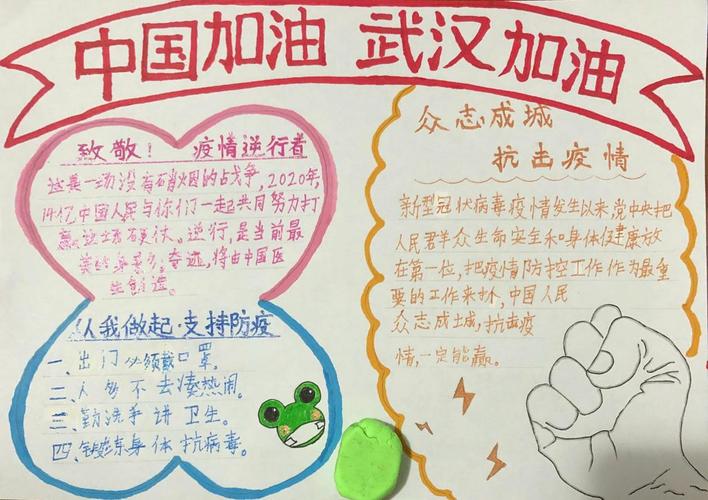 中国加油 武汉加油
致敬! 疫情逆行者
这是一场没有硝烟的战争,2020年,
14亿中国人民与你们一起共同努力打
赢这场硬仗。逆行,是当前最
美的身影。奇迹,将由中国医
生创造。
从我做起·支持防疫
一、出门必须戴口罩。
二、人多不去凑热闹。
三、勤洗手讲卫生。
四、锻炼身体抗病毒。
众志成城
抗击疫情
新型冠状病毒疫情发生以来,党中央把
人民群众生命安全和身体健康放
在第一位,把疫情防控工作作为最重
要的工作来抓,中国人民
众志成城,抗击疫
情,一定能赢。